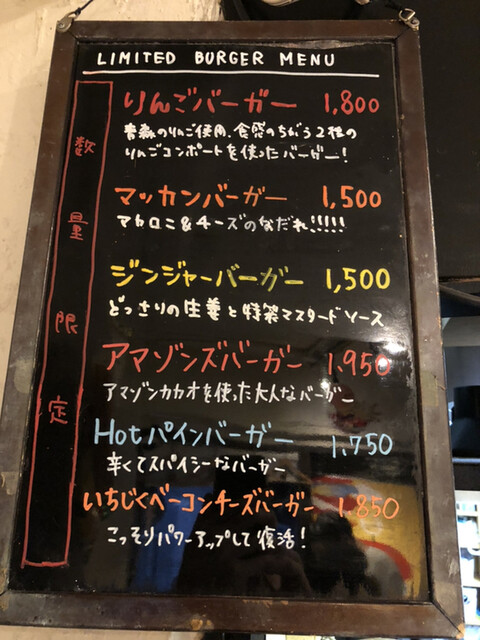 LIMITED BURGER MENU
数量限定
りんごバーガー 1,800
青森のりんご使用、食感のちがう2種の
りんごコンポートを使ったバーガー!
マッカンバーガー 1,500
マカロニ&チーズのなだれ!!!!!
ジンジャーバーガー 1,500
どっさりの生姜と特製マスタードソース
アマゾンズバーガー 1,950
アマゾンカカオを使った大人なバーガー
Hotパインバーガー 1,750
辛くてスパイシーなバーガー
いちじくベーコンチーズバーガー 1,850
こっそりパワーアップして復活!